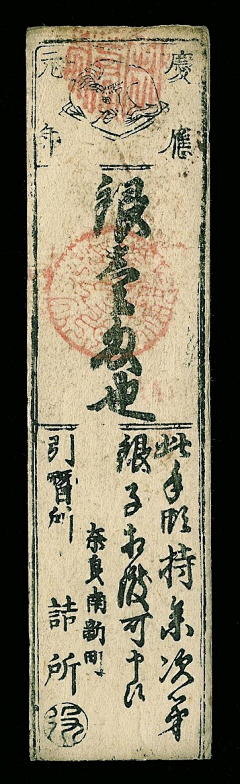 慶應
元年
銀壹匁也
此手形持参次第
銀子相渡可申候
奈良南新町
引替所
詰所